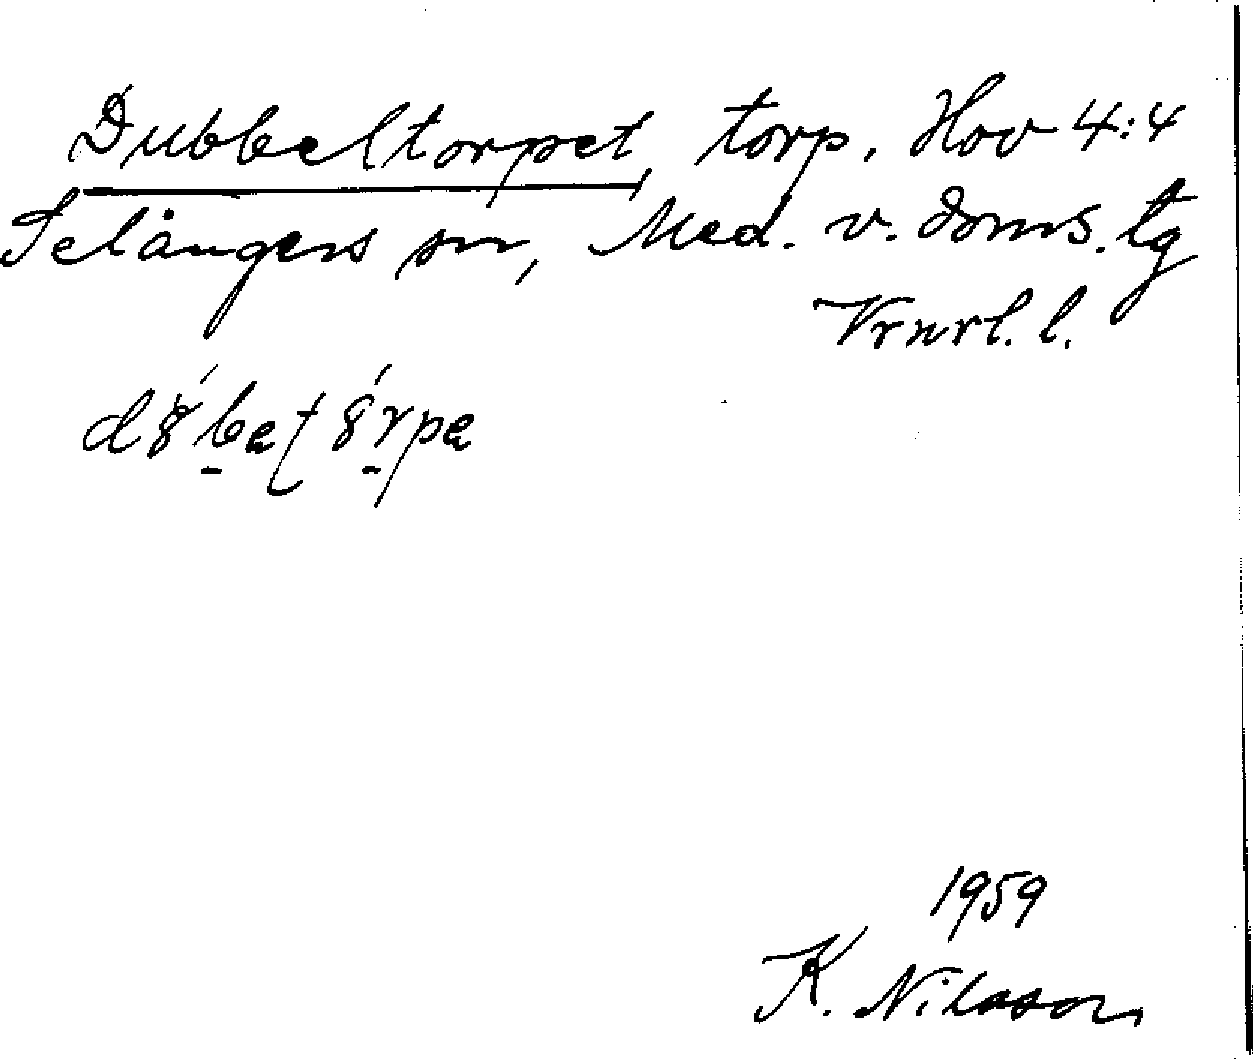 Dubbeltorpet, torp, Hov 4:4
Selångers sn, Med. v. doms. tg
Vrnrl. l.
1959
K. Nilsson